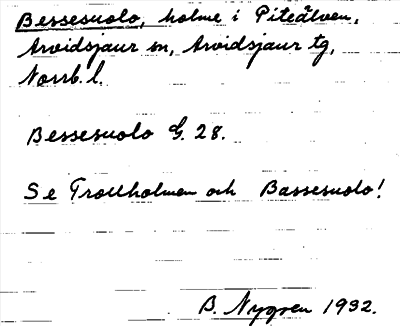 Bessesuolo, holme i Piteälven,
Arvidsjaur sn, Arvidsjaur tg,
Norrb. l.
Bessesuolo G. 28.
Se Trollholmen och Bassesuolo!
B. Nygren 1932.